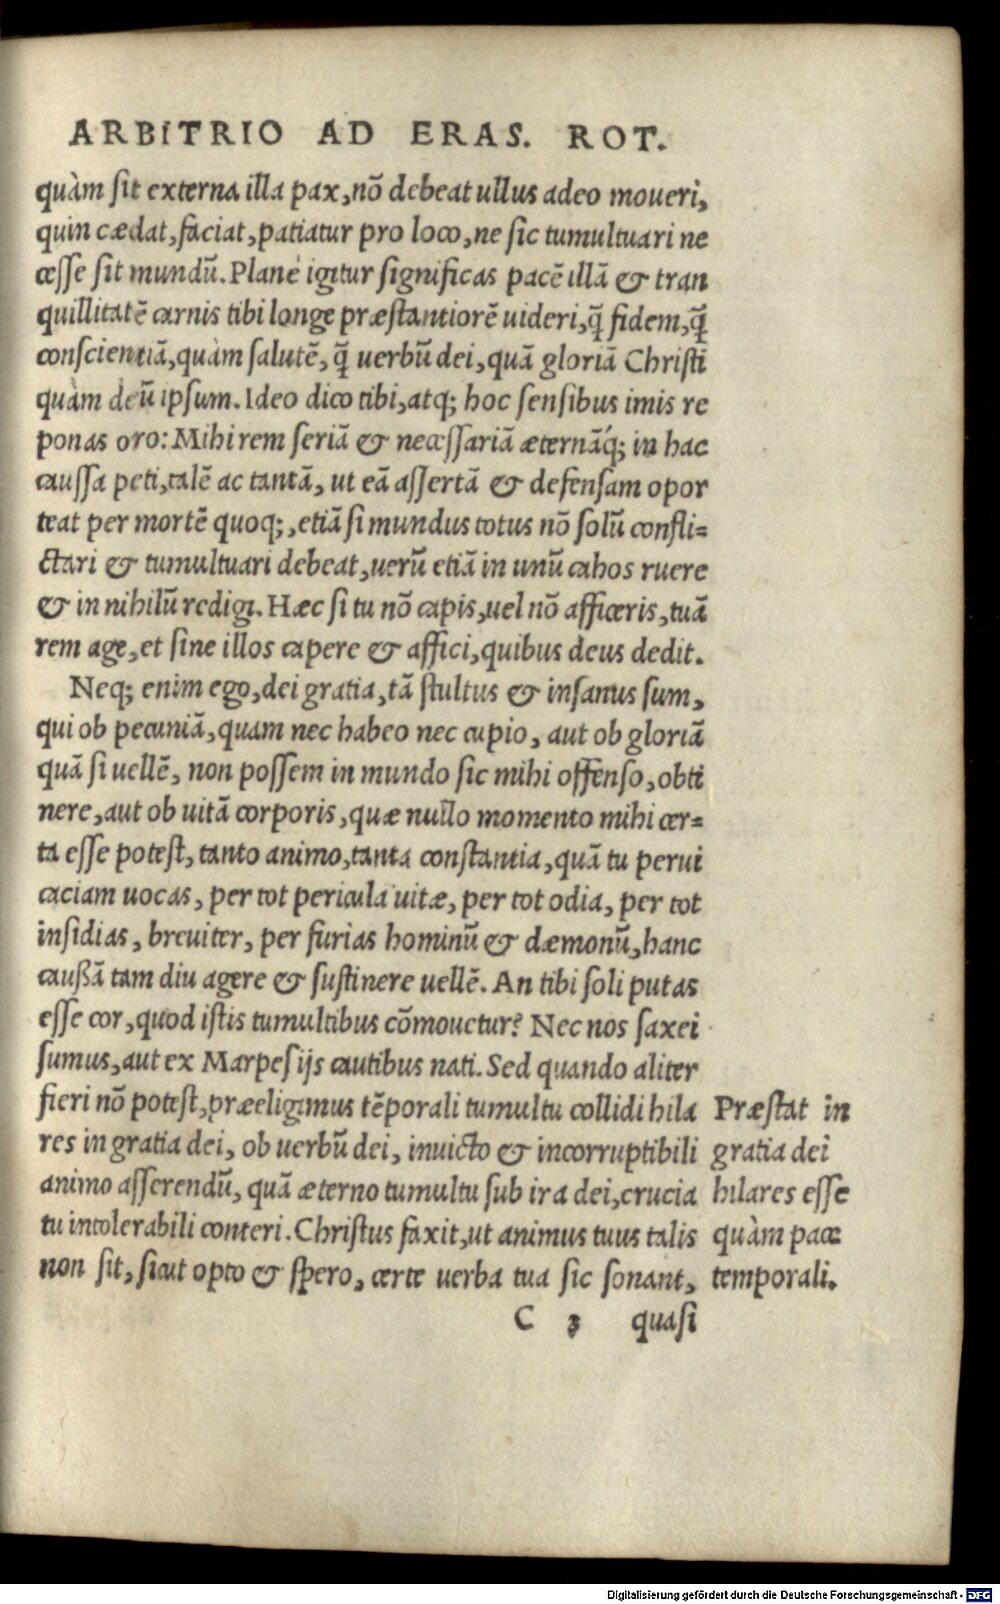 ARBITRIO AD ERAS. ROT.
quàm sit externa illa pax, nõ debeat ullus adeo moueri,
quin cædat, faciat, patiatur pro loco, ne sic tumultuari ne
cesse sit mundũ. Planè igitur significas pacẽ illã & tran
quillitatẽ carnis tibi longe præstantiorẽ uideri, q̃ fidem, q̃
conscientiã, quàm salutẽ, q̃ uerbũ dei, quã gloriã Christi
quàm deũ ipsum. Ideo dico tibi, atq; hoc sensibus imis re
ponas oro: Mihi rem seriã & necessariã æternãq́; in hac
caussa peti, talẽ ac tantã, ut eã assertã & defensam opor
teat per mortẽ quoq;, etiã si mundus totus nõ solũ confli=
ctari & tumultuari debeat, uerũ etiã in unũ cahos ruere
& in nihilũ redigi. Hæc si tu nõ capis, uel nõ afficeris, tuã
rem age, et sine illos capere & affici, quibus deus dedit.
Neq; enim ego, dei gratia, tã stultus & insanus sum,
qui ob pecuniã, quam nec habeo nec cupio, aut ob gloriã
quã si uellẽ, non possem in mundo sic mihi offenso, obti
nere, aut ob uitã corporis, quæ nullo momento mihi cer=
ta esse potest, tanto animo, tanta constantia, quã tu perui
caciam uocas, per tot pericula uitæ, per tot odia, per tot
insidias, breuiter, per furias hominũ & dæmonũ, hanc
caußã tam diu agere & sustinere uellẽ. An tibi soli putas
esse cor, quod istis tumultibus cõmouetur? Nec nos saxei
sumus, aut ex Marpesijs cautibus nati. Sed quando aliter
fieri nõ potest, præeligimus tẽporali tumultu collidi hila
res in gratia dei, ob uerbũ dei, inuicto & incorruptibili
animo asserendũ, quã æterno tumultu sub ira dei, crucia
tu intolerabili conteri. Christus faxit, ut animus tuus talis
non sit, sicut opto & spero, certe uerba tua sic sonant,
Præstat in
gratia dei
hilares esse
quàm pace
temporali.
C 3 quasi
Digitalisierung gefördert durch die Deutsche Forschungsgemeinschaft - DFG